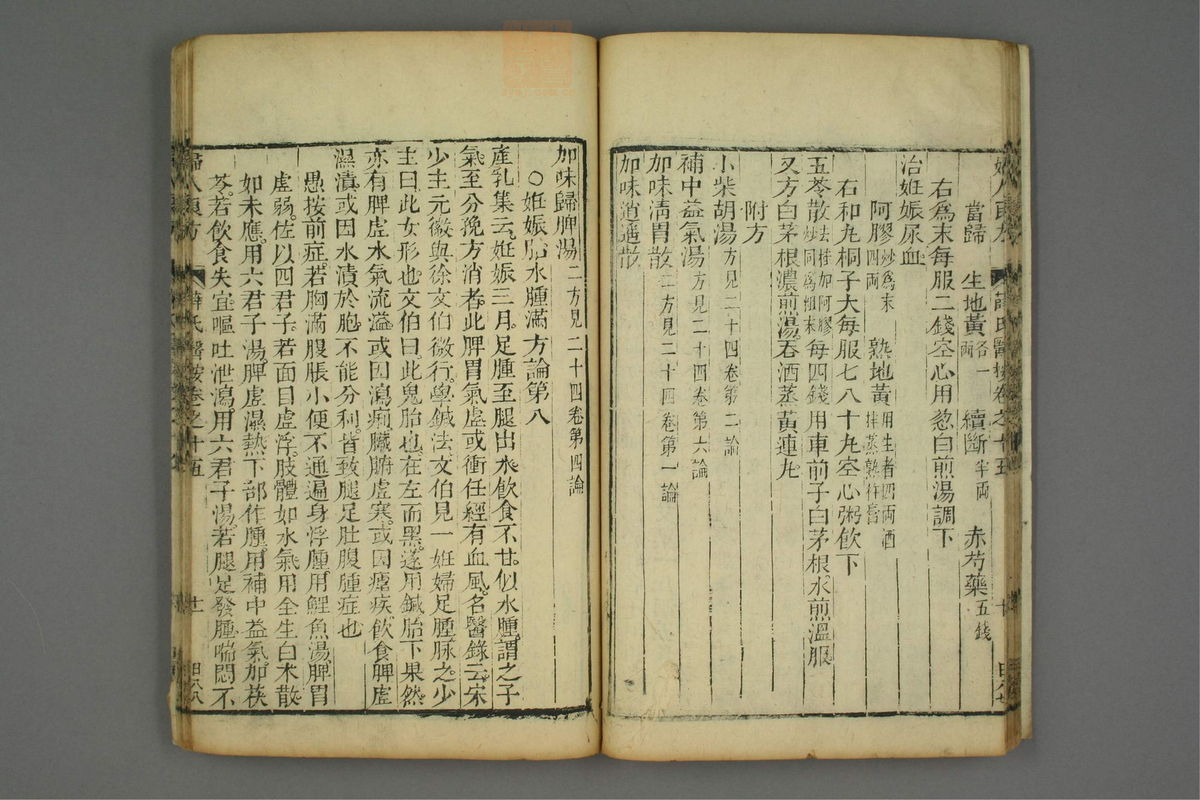 當歸 生地黃各一兩 續斷半兩 赤芍藥五錢
右爲末每服二錢空心用葱白煎湯調下
治姙娠尿血
阿膠炒爲末四兩 熟地黃用生者四兩酒拌蒸熟杵膏
右和丸桐子大每服七八十丸空心粥飲下
五苓散去桂加阿膠炒同爲粗末每四錢用車前子白茅根水煎溫服
又方白茅根濃煎湯吞酒蒸黃連丸
附方
小柴胡湯方見二十四卷第二論
補中益氣湯方見二十四卷第六論
加味清胃散二方見二十四卷第一論
加味逍遙散
加味歸脾湯二方見二十四卷第四論
○姙娠胎水腫滿方論第八
產乳集云姙娠三月足腫至腿出水飲食不甘似水腫謂之子
氣至分娩方消者此脾胃氣虛或衝任經有血風名醫錄云宋
少主元徽與徐文伯微行學鍼法文伯見一姙婦足腫脉之少
主曰此女形也文伯曰此鬼胎也在左而黑遂用鍼胎下果然
亦有脾虛水氣流溢或因瀉痢臟腑虛寒或因瘧疾飲食脾虛
濕漬或因水漬於胞不能分利皆致腿足肚腹腫症也
愚按前症若胸滿腹脹小便不通遍身浮腫用鯉魚湯脾胃
虛弱佐以四君子若面目虛浮肢體如水氣用全生白朮散
如未應用六君子湯脾虛濕熱下部作腫用補中益氣加茯
苓若飲食失宜嘔吐泄瀉用六君子湯若腿足發腫喘悶不
婦人良方 薛氏醫按卷之十五 十一 田八